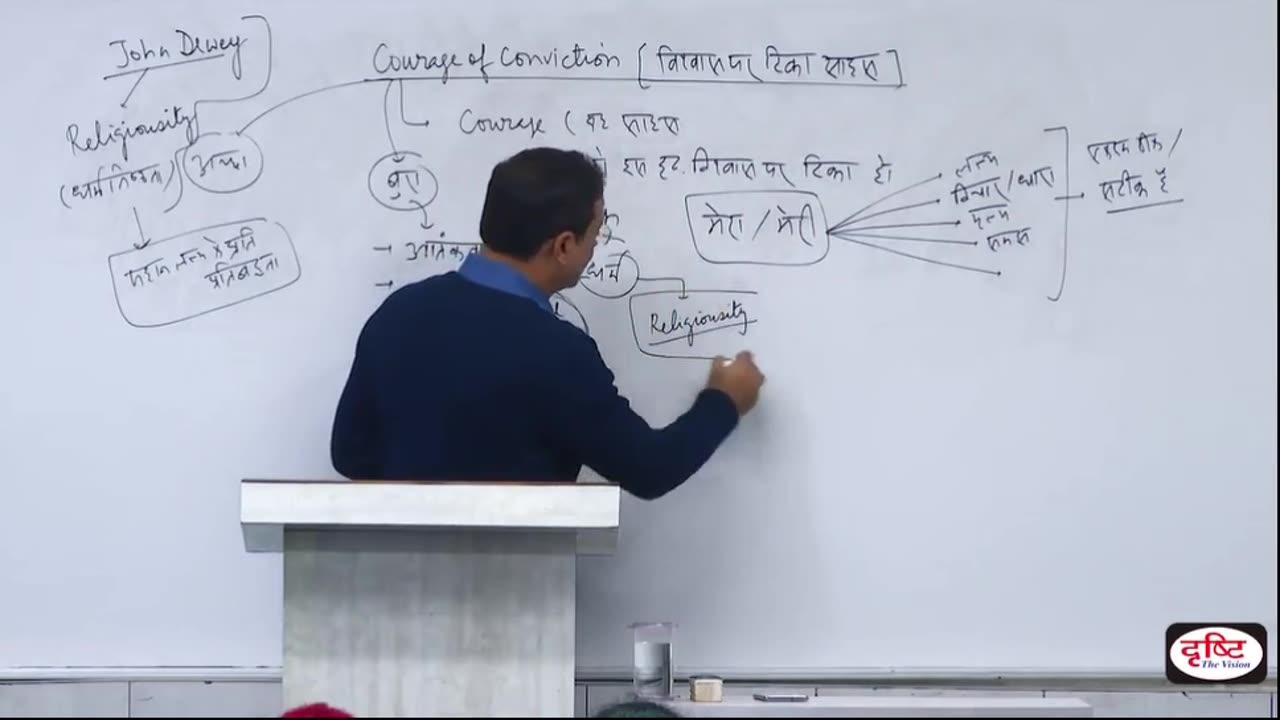 John Dewey
Religiousity
(धर्म निष्ठता)
महान लक्ष्य के प्रति
प्रतिबद्धता
Courage of Conviction [विश्वास पर टिका साहस]
अच्छा
Courage (वह साहस
जो इस दृढ़ विश्वास पर टिका हो
बुरा
→ आतंकवा
धर्म
Religiousity
मेरा / मेरी
लक्ष्य
विचार/धारा
मूल्य
समझ
एकदम ठीक/
सटीक है
दृष्टि
The Vision